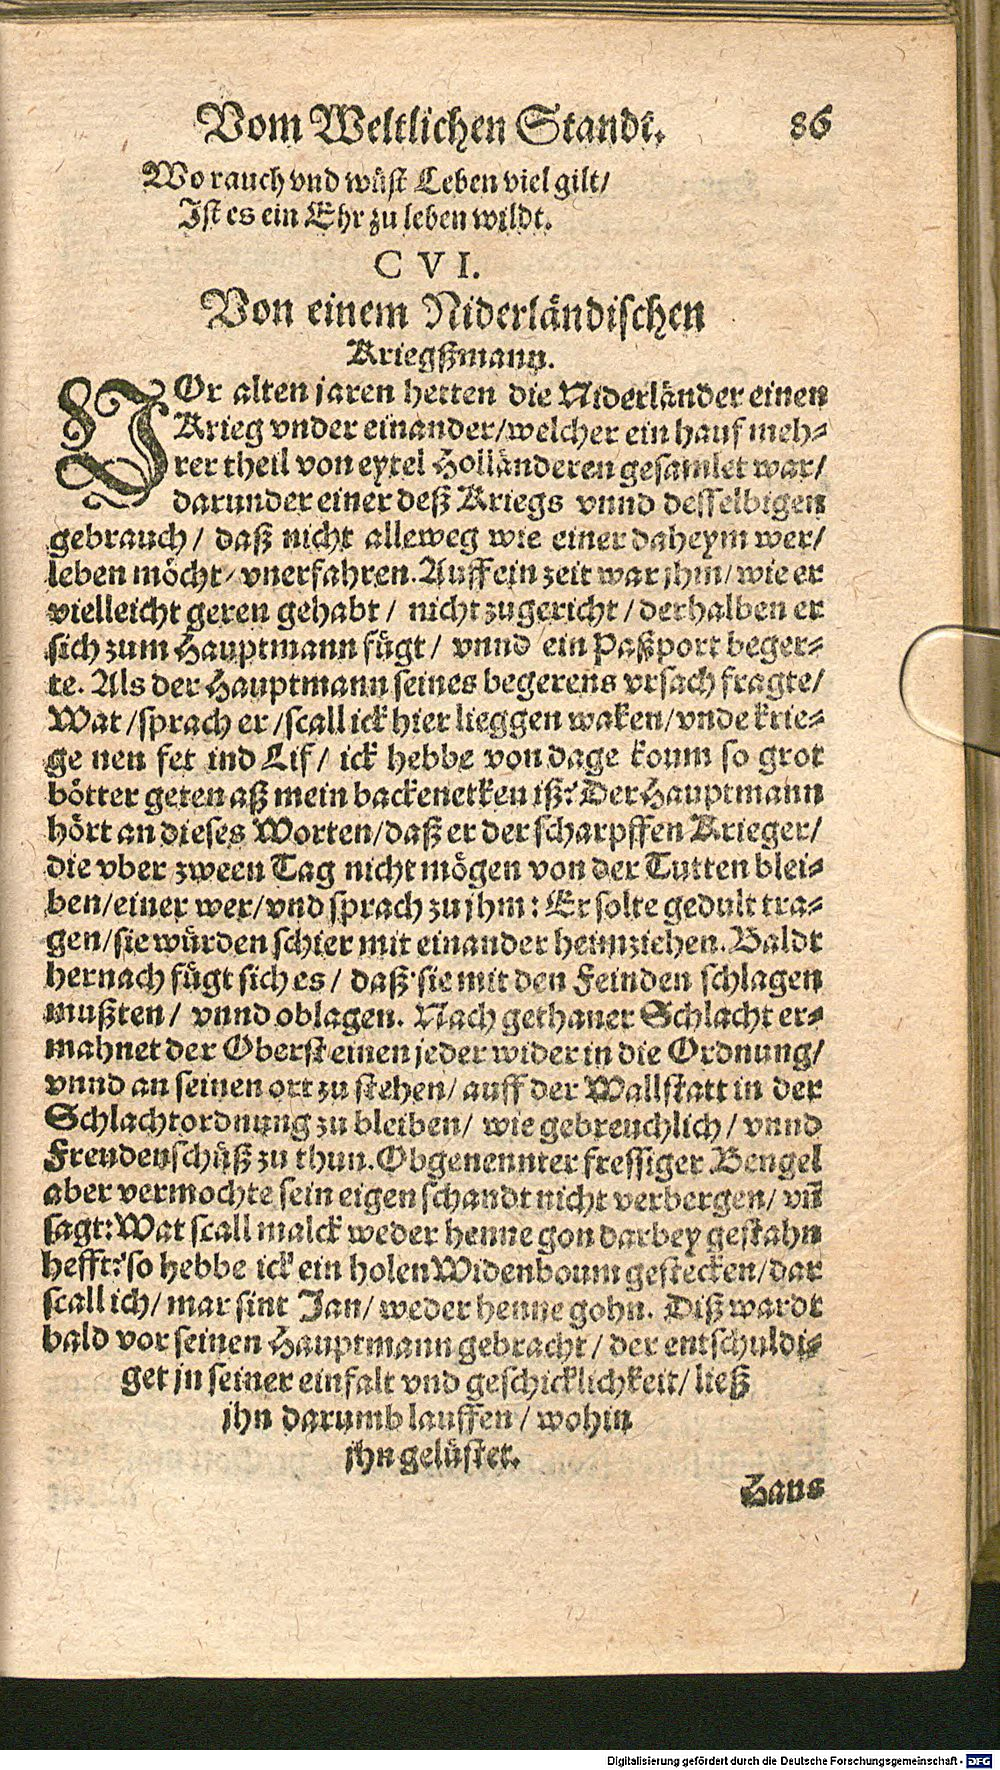 Vom Weltlichen Standt. 86
Wo rauch vnd wüst Leben viel gilt/
Ist es ein Ehr zu leben wildt.
CVI.
Von einem Niderländischen
Kriegßmann.
VOr alten jaren hetten die Niderländer einen
Krieg vnder einander/welcher ein hauf meh-
rer theil von eytel Holländeren gesamlet war/
darunder einer deß Kriegs vnnd desselbigen
gebrauch/ daß nicht alleweg wie einer daheym wer/
leben möcht/ vnerfahren. Auff ein zeit war jhm/ wie er
vielleicht geren gehabt/ nicht zugericht/ derhalben er
sich zum Hauptmann fügt/ vnnd ein Paßport beger-
te. Als der Hauptmann seines begerens vrsach fragte/
Wat/sprach er/scall ick hier lieggen waken/vnde krie-
ge nen fet ind Lif/ ick hebbe von dage koum so grot
bötter geten aß mein backenetken iß? Der Hauptmann
hört an dieses Worten/daß er der scharpffen Krieger/
die vber zween Tag nicht mögen von der Tutten blei-
ben/einer wer/vnd sprach zu jhm: Er solte gedult tra-
gen/sie würden schier mit einander heimziehen. Baldt
hernach fügt sich es/ daß sie mit den Feinden schlagen
mußten/ vnnd oblagen. Nach gethaner Schlacht er-
mahnet der Oberst einen jeder wider in die Ordnung/
vnnd an seinen ort zu stehen/ auff der Wallstatt in der
Schlachtordnung zu bleiben/ wie gebreuchlich/ vnnd
Freudenschüß zu thun. Obgenennter fressiger Bengel
aber vermochte sein eigen schandt nicht verbergen/ vñ
sagt: Wat scall malck weder henne gon darbey gestahn
hefft? so hebbe ick ein holen Widenboum gestecken/dar
scall ich/ mar sint Jan/ weder henne gohn. Diß wardt
bald vor seinen Hauptmann gebracht/ der entschuldi-
get jn seiner einfalt vnd geschicklichkeit/ ließ
jhn darumb lauffen/ wohin
jhn gelüstet.
Hans
Digitalisierung gefördert durch die Deutsche Forschungsgemeinschaft - DFG